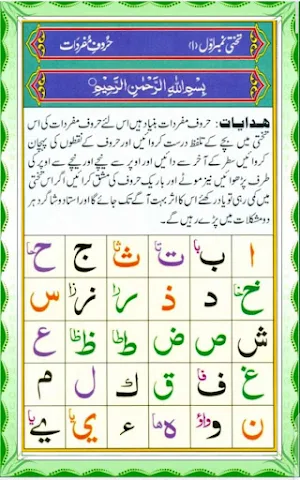 تختی نمبر اوّل (۱) حروف مفردات
بِسْمِ اللهِ الرَّحْمٰنِ الرَّحِيْمِ
ھدایات: حروف مفردات بنیاد ہیں اس لئے حروف مفردات کی اس
تختی میں بچے کے تلفظ درست کروائیں اور حروف کے نقطوں کی پہچان
کروائیں سطر کے آخر سے دائیں اور اوپر سے نیچے اور نیچے سے اوپر کی
طرف پڑھوائیں نیز موٹے اور باریک حروف کی مشق کرائیں اگر اس تختی
میں کمی رہی تو یاد رکھئے اس کا اثر بہت آگے تک جائے گا اور استاد و شاگرد ہر
دو مشکلات میں پڑے رہیں گے۔
ا ب با ت تا ث ثا ج ح حا
خ خا د ذ ر را ز زا س
ش ص ض ط طا ظ ظا ع
غ ف فا ق ك ل م
ن و واؤ ه ها ء ي يا ے يا